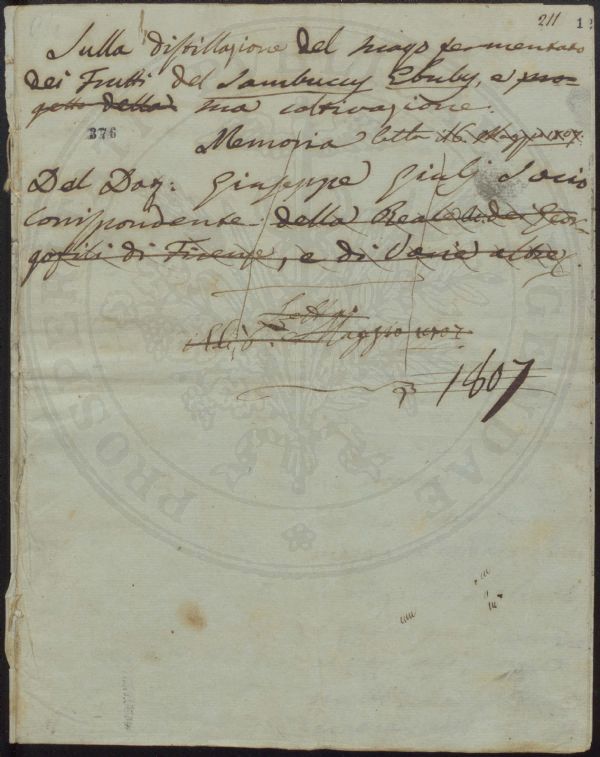 211 1
Sulla distillazione del sugo fermentato
dei Frutti del Sambucus Ebulus, e pro-
getto della sua coltivazione.
376
Memoria letta il 6. Maggio 1807.
Del Dot: Giuseppe Giulj Socio
Corrispondente della Reale A. dei Geor-
gofili di Firenze, e di Varie altre.
Letta
Adì 6. Maggio 1807
1807
PROSPERITATI PUBLICAE AUGENDAE